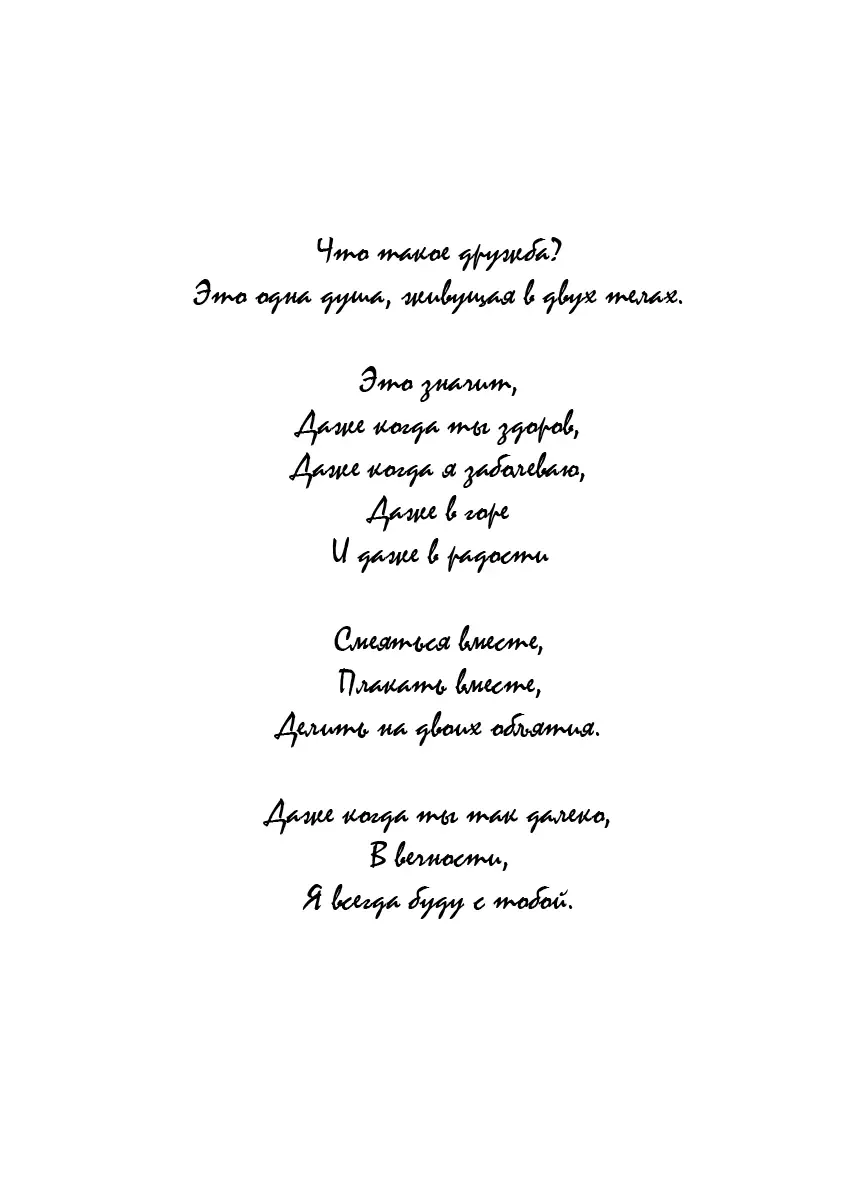 Что такое дружба?
Это одна душа, живущая в двух телах.
Это значит,
Даже когда ты здоров,
Даже когда я заболеваю,
Даже в горе
И даже в радости
Смеяться вместе,
Плакать вместе,
Делить на двоих объятия.
Даже когда ты так далеко,
В вечности,
Я всегда буду с тобой.